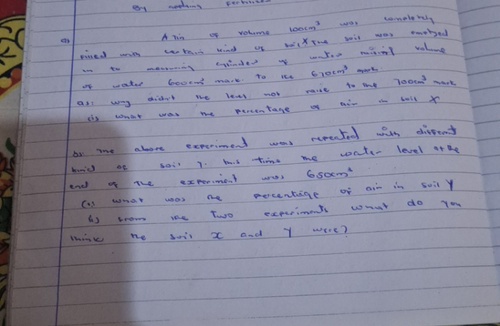 By adding fertilizer
A tin of volume 100cm³ was completely
filled with certain kind of soil X the soil was emptied
in to measuring cylinder of water volume
of water 600cm³ raise to the 670cm³ mark
a). why didn't the level not raise to the 700cm³ mark
(i) what was the percentage of air in soil X
b) The above experiment was repeated with different
kind of soil Y. this time the water level at the
end of the experiment was 650cm³
(a) what was the percentage of air in soil Y
(b) from the two experiments what do you
think the soil X and Y were?